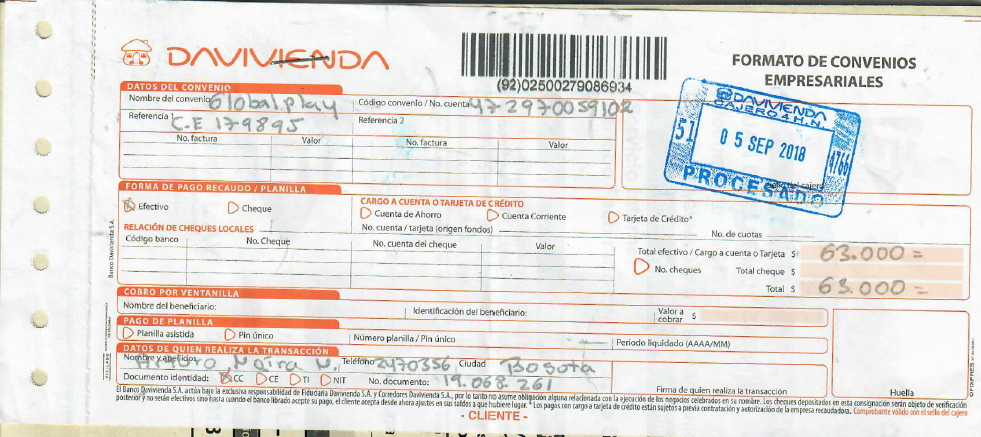 DAVIVIENDA
(92)02500279086934
FORMATO DE CONVENIOS
EMPRESARIALES
DATOS DEL CONVENIO
Nombre del convenio Globalplay Código convenio / No. cuenta 472970059102
Referencia 1 C.E 179895 Referencia 2
No. factura Valor No. factura Valor
DAVIVIENDA
CAJERO 4 H.N.
51 05 SEP 2018 4766
PROCESADO
del cajero
FORMA DE PAGO RECAUDO / PLANILLA
CARGO A CUENTA O TARJETA DE CRÉDITO
Efectivo Cheque Cuenta de Ahorro Cuenta Corriente Tarjeta de Crédito*
RELACIÓN DE CHEQUES LOCALES No. cuenta / tarjeta (origen fondos) No. de cuotas
Código banco No. Cheque No. cuenta del cheque Valor
Total efectivo / Cargo a cuenta o Tarjeta $ 63.000=
No. cheques Total cheque $
Total $ 63.000=
Banco Davivienda S.A.
COBRO POR VENTANILLA
Nombre del beneficiario: Identificación del beneficiario: Valor a cobrar $
PAGO DE PLANILLA
Planilla asistida Pin único Número planilla / Pin único Periodo liquidado (AAAA/MM)
DATOS DE QUIEN REALIZA LA TRANSACCIÓN
Nombre y apellidos Arturo Neira N. Teléfono 2470356 Ciudad Bogota
Documento identidad: CC CE TI NIT No. documento: 19.068.261
Firma de quien realiza la transacción
Huella
El Banco Davivienda S.A. actúa bajo la exclusiva responsabilidad de Fiduciaria Davivienda S.A. y Corredores Davivienda S.A., por lo tanto no asume obligación alguna relacionada con la ejecución de los negocios celebrados en su nombre. Los cheques depositados en esta consignación serán objeto de verificación
posterior y no serán efectivos sino hasta cuando el banco librado acepte su pago, el cliente acepta desde ahora ajustes en sus saldos a que hubiere lugar. * Los pagos con cargo a tarjeta de crédito están sujetos a previa contratación y autorización de la empresa recaudadora. Comprobante válido con el sello del cajero
- CLIENTE -